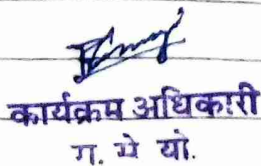 कार्यक्रम अधिकारी
ग. मे यो.